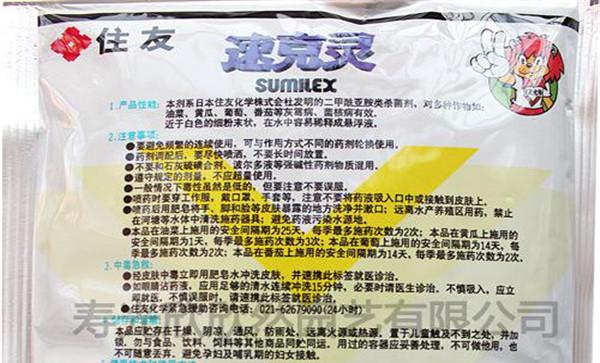 住友
速克灵
SUMILEX
1.产品性能:本剂系日本住友化学株式会社发明的二甲酰亚胺类杀菌剂,对多种作物如:
油菜、黄瓜、葡萄、番茄等灰霉病、菌核病有效。
近于白色的细粉末状,在水中容易稀释成悬浮液。
2.注意事项:
●要避免频繁的连续使用,可与作用方式不同的药剂轮换使用。
●药剂调配后,要尽快喷洒,不要长时间放置。
●不要和石灰硫磺合剂、波尔多液等强碱性药剂物质混用。
●遵守规定的剂量,不应超量使用。
●一般情况下毒性虽然是低的,但要注意不要误服。
●喷药时要穿工作服,戴口罩、手套等,注意不要将药液吸入口中或接触到皮肤上。
●喷药后用肥皂将手、脚和脸等皮肤暴露的地方洗净并漱口;远离水产养殖区用药,禁止
在河塘等水体中清洗施药器具;避免药液污染水源地。
●本品在油菜上施用的安全间隔期为25天,每季最多施药次数为2次;本品在黄瓜上施用的
安全间隔期为1天,每季最多施药次数为3次;本品在葡萄上施用的安全间隔期为14天,每
季最多施药次数为2次;本品在番茄上施用的安全间隔期为14天,每季最多施药次数为2次。
3.中毒急救:
●经皮肤中毒立即用肥皂水冲洗皮肤,并速携此标签就医诊治。
●如眼睛沾药液,应用足够的清水连续冲洗15分钟,必要时请医生诊治,不慎吸入,应立
即就医,不慎误服时,请速携此标签就医诊治。
●住友化学紧急援助咨询电话:021-62679090(24小时)
本品应贮存在干燥、阴凉、通风、防雨处,远离火源或热源,置于儿童触及不到之处,并加
锁,勿与食品、饮料、饲料等其他商品同贮同运。用过的容器应妥善处理,不可做他用,也
不可随意丢弃,避免孕妇及哺乳期的妇女接触。